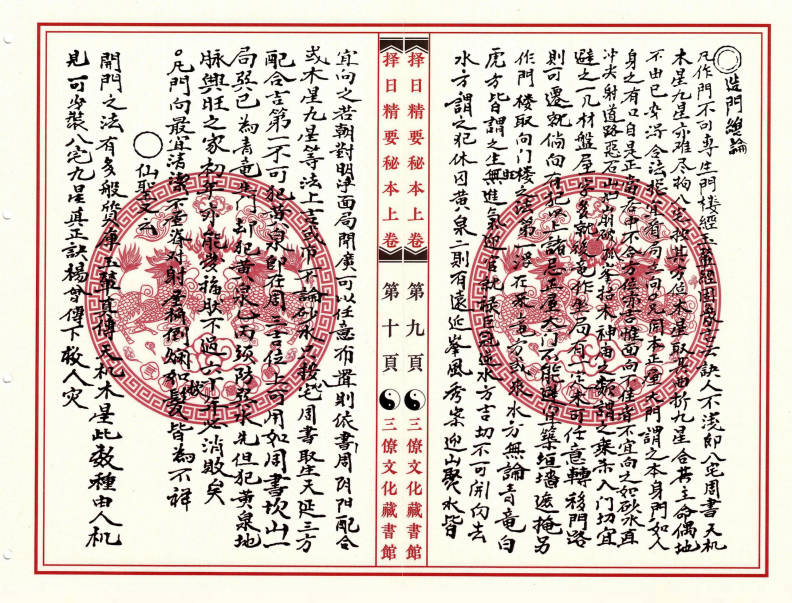 造門總論
凡作門不可專主門楼經玉輦經因訣人不淺即八宅周書天机
木星九星亦难尽拘八宅独其方位木星取其曲折九星合其主命偶地
不由已要得合法宜有局三向。凡開本正屋大門謂之本身門如人
身之有口自是正当若中不合方位亦吉惟面向不佳皆不宜向之如砂水直
冲尖射道路惡石山崩破孤峯枯木神庙之類謂之乘杀入門切宜
避之一凡材盤屋宇多就後竜作坐局有一定未可任意轉移門路
則可遷就倘向有犯以上諸忌正屋大門不能避宜築垣墻遮掩另
作門楼取向門楼之法第一須在来竜方或来水方無論青竜白
虎方皆謂之生無進氣迎官就禄凡迎水方吉切不可開向去
水方謂之犯休囚黄泉二則有遠近峯風秀案迎山聚水皆
択日精要秘本上卷 第九頁 三僚文化藏書館
択日精要秘本上卷 第十頁 三僚文化藏書館
宜向之若朝對明净面局開廣可以任意布置則依書周阴阳配合
或木星九星等法上吉或不論砂水只宅周書取生天延三方
配合吉第一不可犯黄泉即在周書吉位上可用如周書坎山一
局巽巳為青竜生門却犯黄泉乙丙须防巽水先但犯黄泉地
脉興旺之家初年亦能發福不过六十年必消敗矣
。凡門向最宜清潔不脊对射倒皆為不祥
仙聖云
開門之法有多般貨庫玉輦真傳天机木星此数種由人机
見可少裝八宅九星真正訣楊曾傳下救人灾